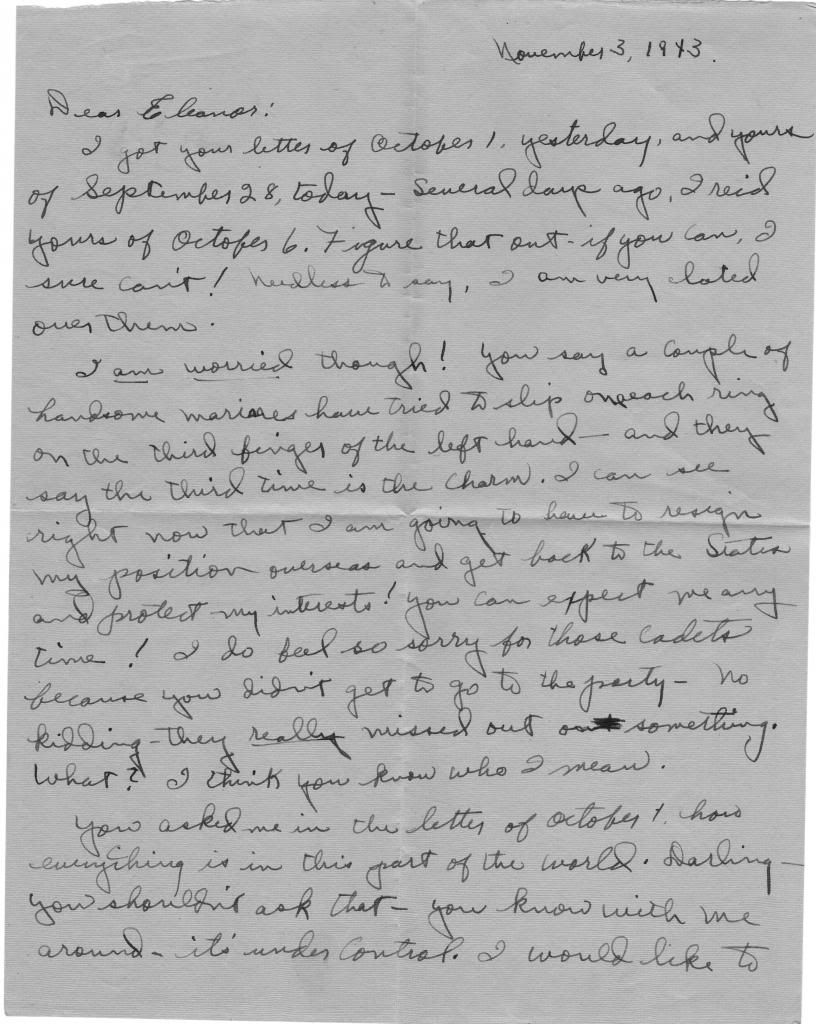 November 3, 1943.
Dear Eleanor:
I got your letter of October 1, yesterday, and yours
of September 28, today – Several days ago, I rec'd
yours of October 6. Figure that out - if you can, I
sure can't! Needless to say, I am very elated
over them.
I am worried though! You say a couple of
handsome marines have tried to slip each ring
on the third finger of the left hand – and they
say the third time is the charm. I can see
right now that I am going to have to resign
my position overseas and get back to the States
and protect my interests! You can expect me any
time! I do feel so sorry for those cadets
because you didn't get to go to the party – No
kidding – they really missed out on something.
What? I think you know who I mean.
You asked me in the letter of October 1, how
everything is in this part of the world. Darling –
you shouldn't ask that – you know with me
around – it's under control. I would like to